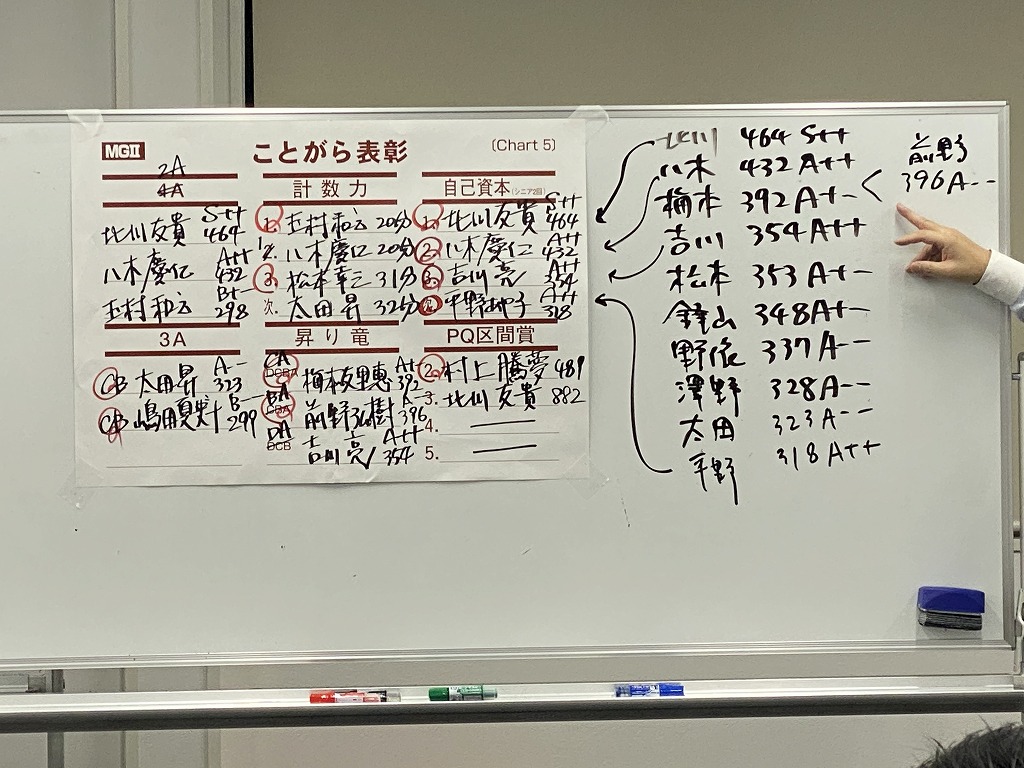 MGⅡ
ことがら表彰
(Chart 5)
2A
4A
北川友貴 S++ 464
八木慶仁 A++ 432
玉村和云 B+- 298
計数力
1. 玉村和云 20分
1/2. 八木慶仁 20分
3. 松本幸三 31分
次. 太田昇 32分
自己資本(シニア2回)
1. 北川友貴 S++ 464
2. 八木慶仁 A++ 432
3. 吉川亮 A++ 354
次 平野 子 A++ 318
3A
CB 太田昇 A-- 323
CB 嶋田 B-- 299
昇り竜
CA DCBA 梅本友里恵 A+- 392
BA CBA 前野弘樹 A-- 396
DA DCB 吉川亮 A++ 354
PQ区間賞
2. 村上騰夢 489
3. 北川友貴 882
4.
5.
北川 464 S++
八木 432 A++
梅本 392 A+-
吉川 354 A++
松本 353 A+-
鐘山 348 A+-
野俣 337 A--
澤野 328 A--
太田 323 A--
平野 318 A++
前野
396 A--